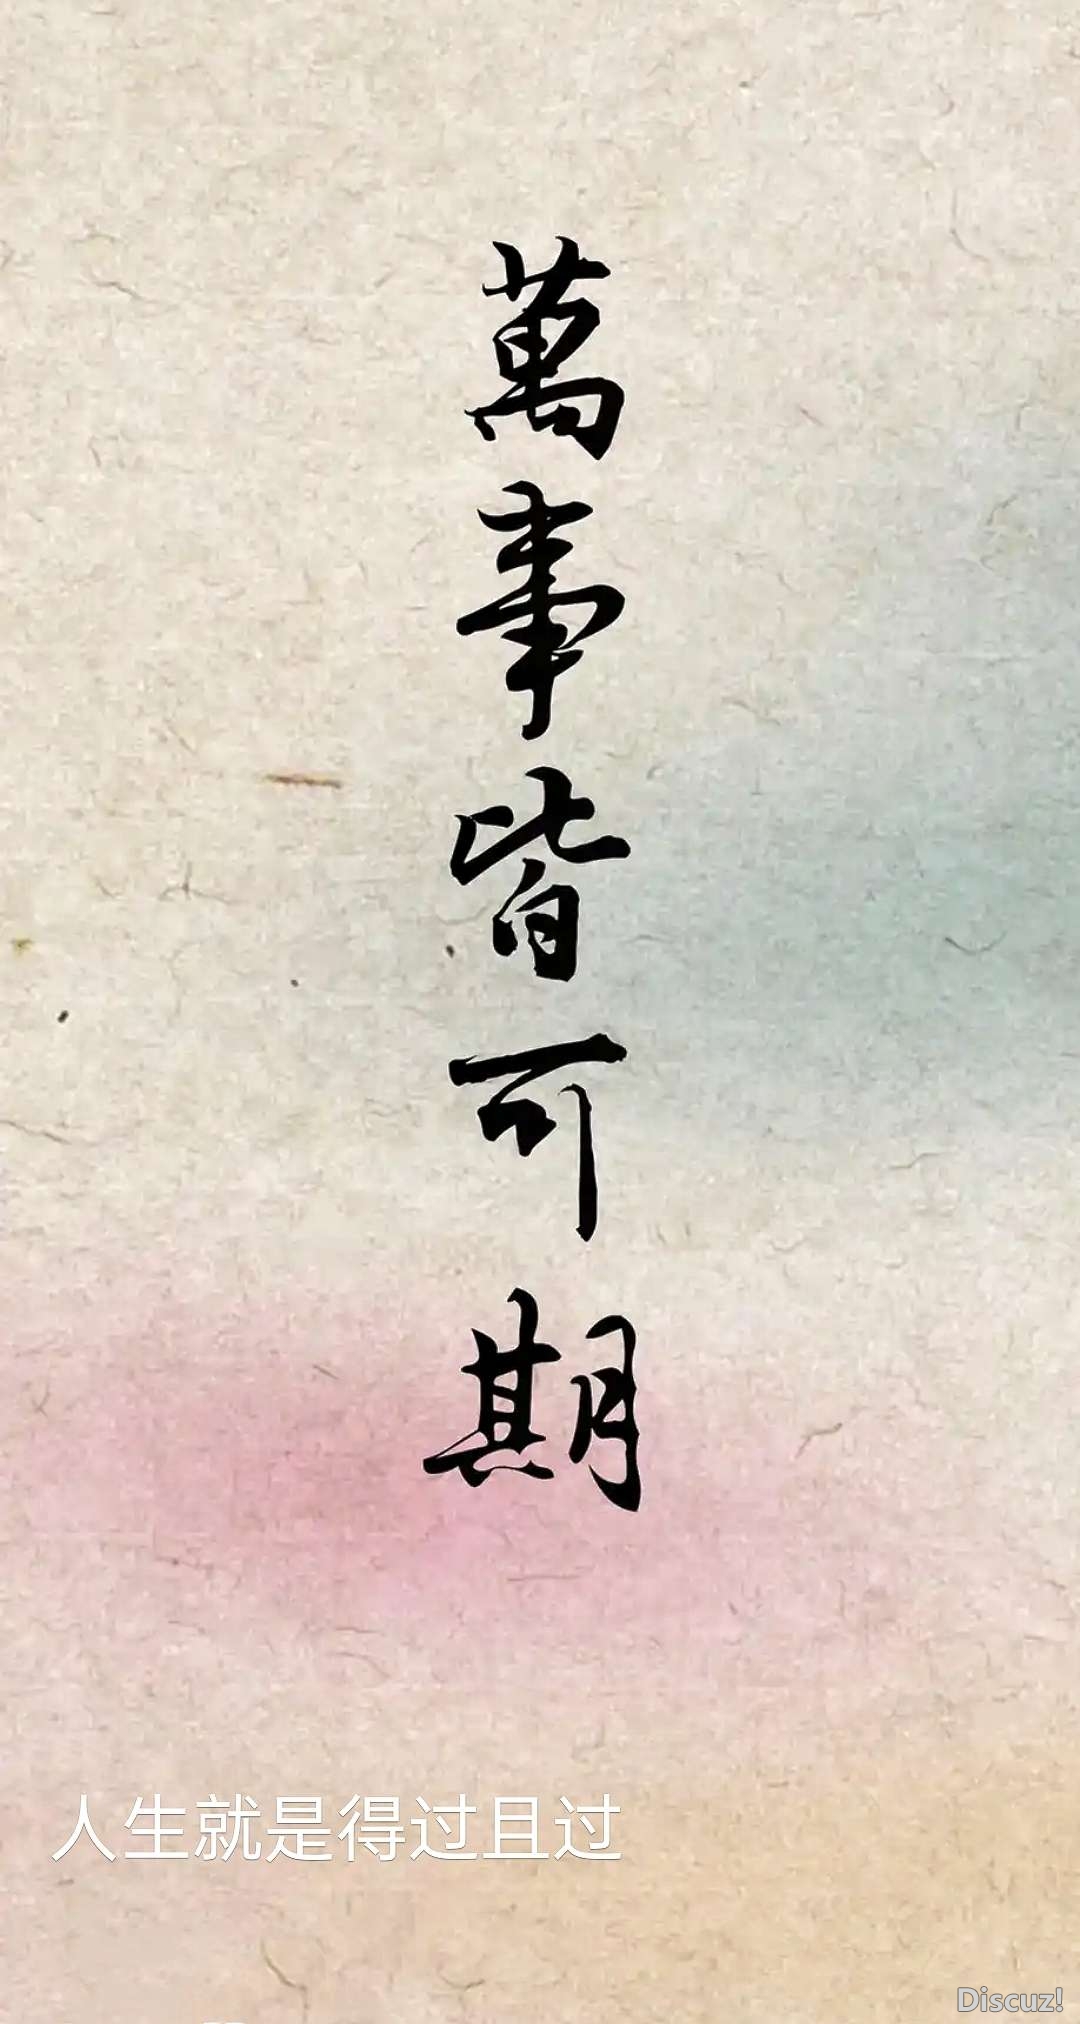 萬事皆可期
人生就是得过且过
Discuz!